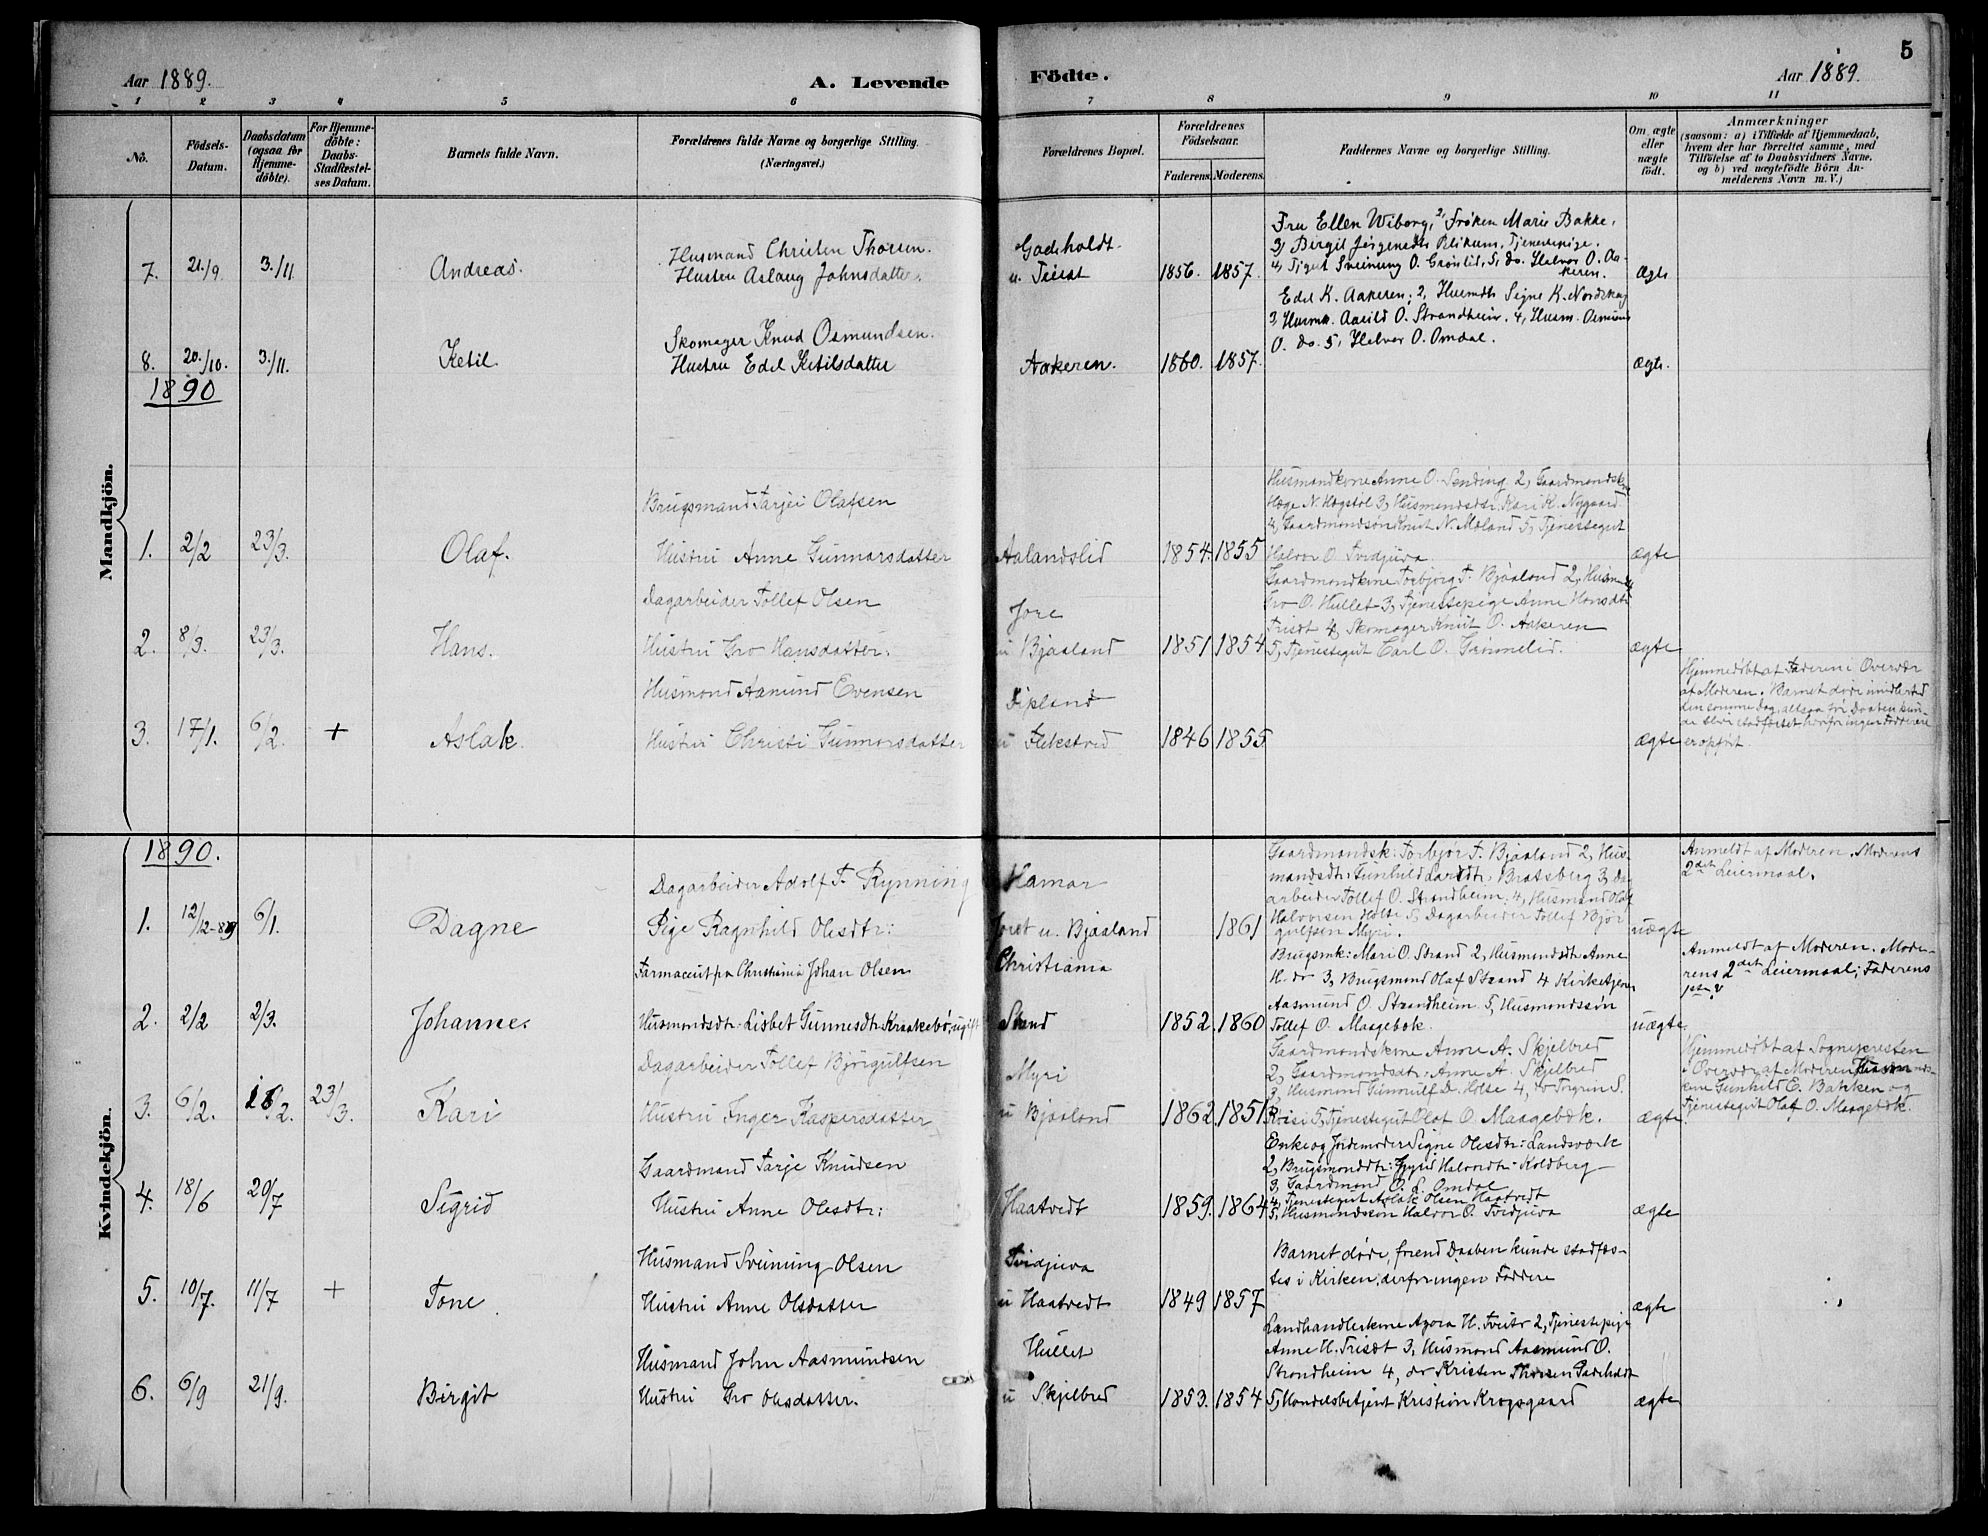 5
Aar 1889.
A. Levende Födte.
Aar 1889.
1 2 3 4 5 6 7 8 9 10 11
No.
Födsels-Datum.
Daabsdatum (ogsaa for Hjemme-döbte).
For Hjemme-döbte: Daabs-Stadfæstel-ses Datum.
Barnets fulde Navn.
Forældrenes fulde Navne og borgerlige Stilling. (Næringsvei.)
Forældrenes Bopæl.
Forældrenes Födselsaar.
Faderens. Moderens.
Faddernes Navne og borgerlige Stilling.
Om ægte eller uægte födt.
Anmærkninger
(saasom: a) i Tilfælde af Hjemmedaab,
hvem der har forrettet samme, med
Tilföielse af to Daabsvidners Navne,
og b) ved uægtefödte Börn An-
melderens Navn m. V.)
Mandkjön.
7. 21./9 3./11 Andreas.
Husmand Christen Thorsen.
Hustru Aslaug Johnsdatter.
Gadeholdt
u. Teisat 1856. 1857.
Fru Ellen Wiborg, 2, Frøken Marie Bakke,
3, Birgit Jørgensdtr Blikum, Tjenestepige.
4, Tjgut Sveinung O. Grønlid, 5, do. Halvor O. Aa-
keren.
ægte
8. 20./10. 3./11. Ketil.
Skomager Knud Osmundsen.
Hustru Edel Ketilsdatter
Aakeren. 1860. 1857.
Edel K. Aakeren; 2, Husmdtr Signe K. Nordskog
3 Husm. Aasild O. Strandheim. 4, Husm. Osmund
O. do. 5, Halvor O. Omdal.
ægte.
1890
1. 2/2 23/3. Olaf.
Brugsmand Tarjei Olafsen
Hustru Anne Gunnarsdatter
Aalandslid 1854. 1855
Husmandskone Anne O. Sending 2, Gaardmandskone
Hæge N. Høgstøl 3, Husmandsdtr. Kari K. Nygaard
4, Gaardmandssøn Knut N. Moland 5, Tjenestegut
Halvor O. Tvidjuva
ægte
2. 8/3. 23/3. Hans.
Dagarbeider Tollef Olsen
Hustru Gro Hansdatter.
Jore
u Bjaaland 1851 1854
Gaardmandskone Torbjørg T. Bjaaland 2, Husmdk
Gro O. Hullet 3, Tjenestepige Anne Hansdtr
Trisæt 4, Skomager Knut O. Aakeren
5, Tjenestegut Carl O. Grønnelid.
ægte
3. 17/1. 6/2. + Aslak.
Husmand Aamund Evensen
Hustru Christi Gunnarsdatter
Dipland
u Flekstved 1846 1855
ægte
Hjemmedøbt af Faderen i Overvær
af Moderen. Barnet døde imidlertid
den samme dag, altsaa før Daaben kun-
de blive stadfæstet hvorfor ingen Faddere
er opført.
Kvindekjön.
1890.
1. 12/12-89 6/1. Dagne
Dagarbeider Adolf T. Rynning
Pige Ragnhild Olesdtr:
Hamar
Joret u. Bjaaland 1861
Gaardmandsk: Torbjør T. Bjaaland 2, Hus-
mandsdtr: Gunhild Larsdtr: Bratsberg 3, Da-
arbeider Tollef O. Strandheim. 4, Husmand Olaf
Halvorsen Holte 5, Dagarbeider Tollef Bjør
gulfsen Myri.
uægte
Anmeldt af Moderen. Moderens
2det Leiermaal.
2. 2/2 2/3. Johanne.
Farmaceut fra Christiania Johan Olsen
Husmandsdtr. Lisbet Gunnesdtr. Kraakebø, ugift
Christiania
Strand 1852. 1860
Brugsmk: Mari O. Strand 2, Husmandsdtr Anne
H. do 3, Brugsmand Olaf Strand 4 Kirketjener
Aasmund O. Strandheim 5, Husmandssøn
Tollef O. Maagebøk.
uægte.
Anmeldt af Moderen. Mode-
rens 2det Leiermaal; Faderens
1ste?
3. 6/2. 16/2. 23/3. Kari
Dagarbeider Tollef Bjørgulfsen
Hustru Inger Kaspersdatter
Myri
u Bjaaland 1862. 1851.
Gaardmandskone Anne A. Skjelbred
2, Gaardmandsdtr. Anne A. Skjelbred
3, Husmand Gunnulf D. Holte 4, do Jørgen S.
5, Tjenestegut Olaf O. Maagebøk.
ægte
Hjemmedøbt af Sognepresten
i Overvær af Moderen, Husmands-
kone Gunhild E. Bakken og
Tjenestegut Olaf O. Maagebøk.
4. 18/6 20/7 Sigrid
Gaardmand Tarje Knudsen
Hustru Anne Olesdtr:
Haatvedt 1859. 1864
Enke og Jordemoder Signe Olesdtr: Landsværk
2, Brugsmandsdtr: Sigrid Halvordtr. Koldberg
3, Gaardmand O. L. Omdal
4, Tjenestegut Aslak Olsen Haatvedt
5, Husmandssøn Halvor O. Tvidjuva
ægte
5. 10/7. 11/7 + Tone
Husmand Sveinung Olsen
Hustru Anne Olsdatter
Tvidjuva
u Haatvedt 1849 1857
Barnet døde, førend Daaben kunde stadfæs-
tes i Kirken, derfor ingen Faddere
ægte
6. 6/9 21/9. Birgit
Husmand John Aasmundsen
Hustru Gro Olesdatter.
Hullet
u Skjelbred 1853. 1854
Landhandlerkone Agora H. Tveitr 2, Tjenestepige
Anne H. Trisæt 3, Husmand Aasmund O.
Strandheim 4, do Kristen Thorsen Gadeholdt
5, Handelsbetjent Kristian Krogsgaard
ægte